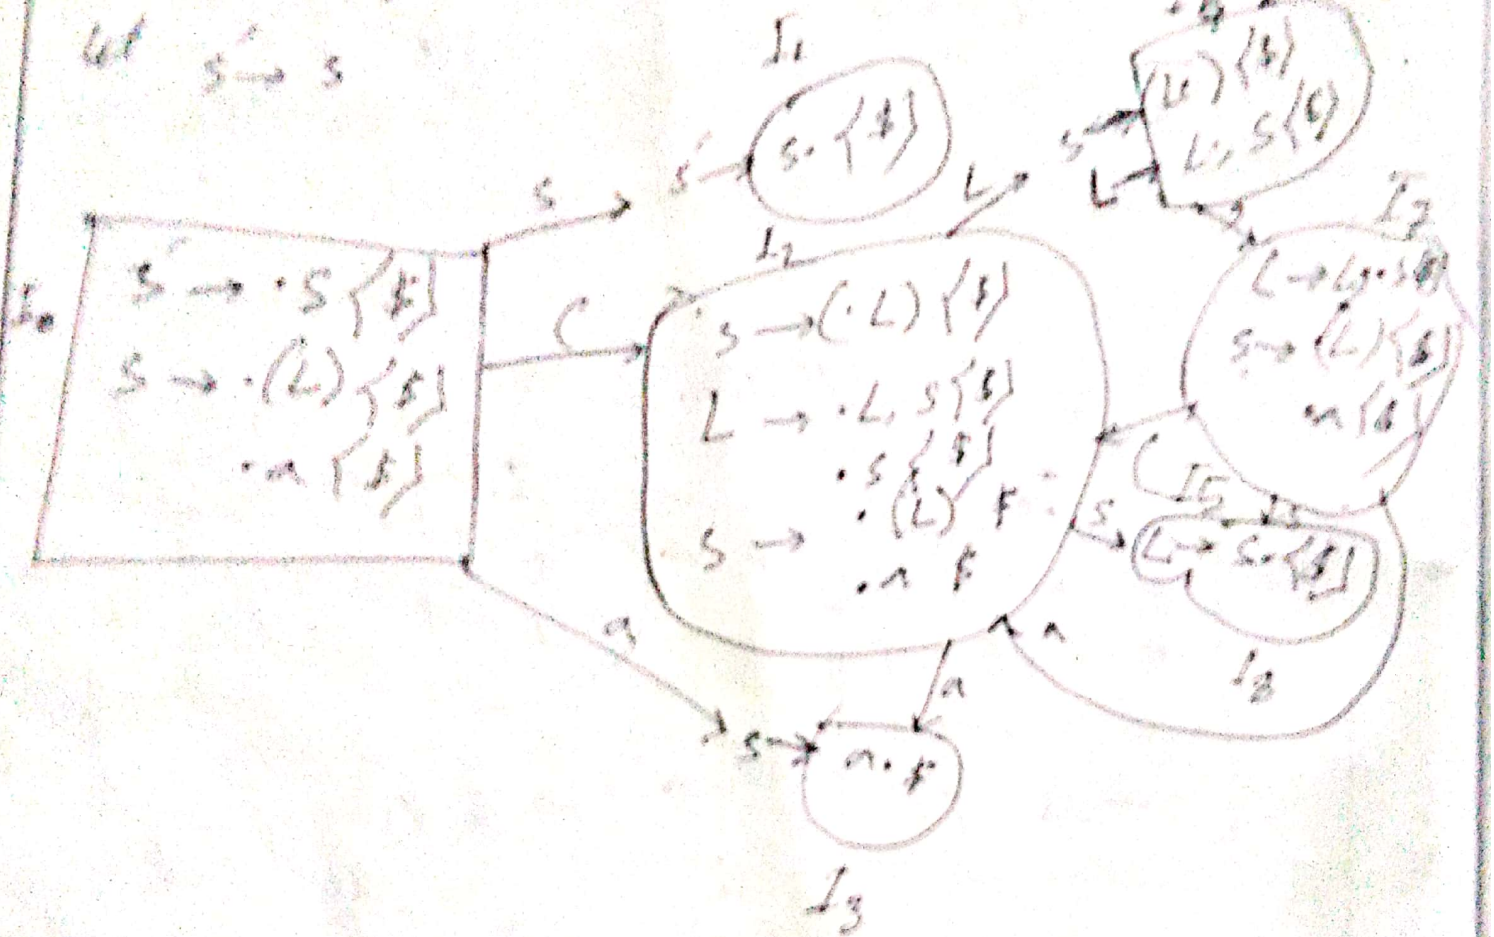 Let
S' → S
I0
S' → ·S {$}
S → ·(L) {$}
·a {$}
S
(
a
I1
S' → S· {$}
I2
S → (·L) {$}
L → ·L, S {$}
·S {$}
S → ·(L) $
·a $
L
S
a
S → (L·) {$}
L → L·, S {$}
,
L → L,·S {$}
S → ·(L) {$}
·a {$}
(
I5
S
L → S· {$}
I8
a
S → a· $
I3